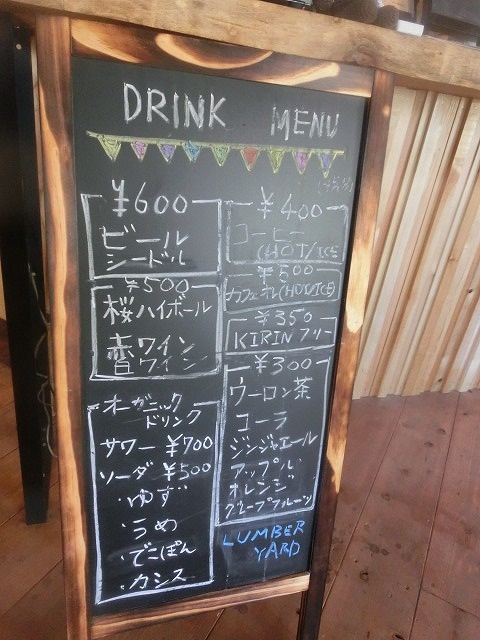 DRINK MENU
¥600
ビール
シードル
¥500
桜ハイボール
赤ワイン
ワイン
オーガニック
ドリンク
サワー ¥700
ソーダ ¥500
・ゆず
・うめ
・でこぽん
・カシス
¥400
コーヒー
(HOT/ICE)
¥500
カフェオレ(HOT/ICE)
¥350
KIRIN フリー
¥300
ウーロン茶
コーラ
ジンジャエール
アップル
オレンジ
グレープフルーツ
LUMBER
YARD